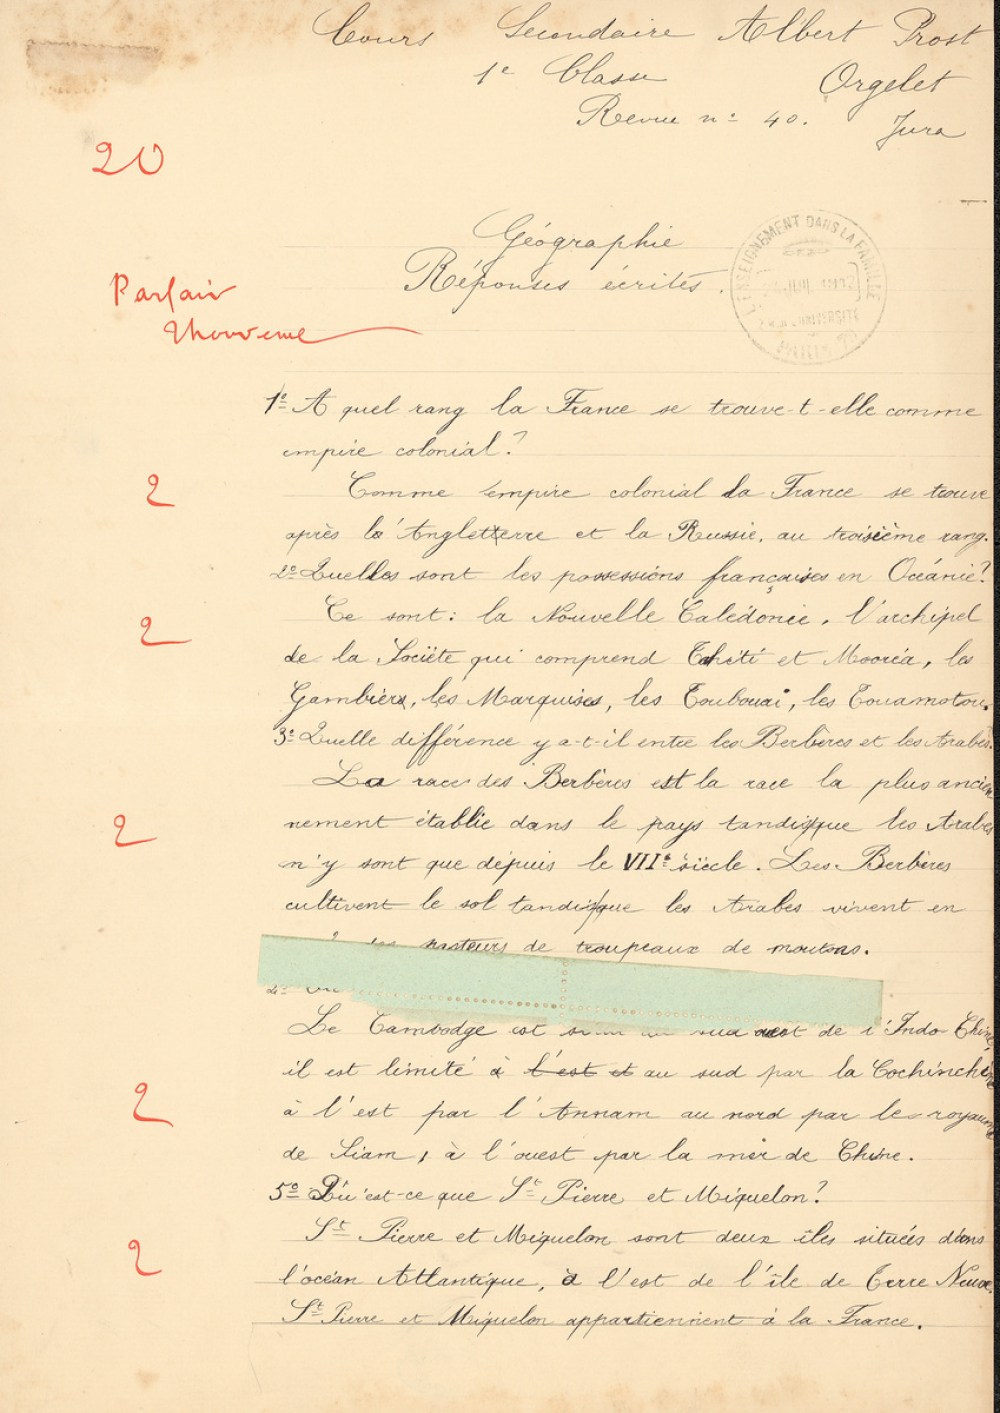 Cours Secondaire Albert Prost
1e Classe Orgelet
Revue no 40. Jura
20
Géographie
Réponses écrites.
L'ENSEIGNEMENT DANS LA FAMILLE
Parfait
1o A quel rang la France se trouve-t-elle comme
empire colonial?
2
Comme empire colonial la France se trouve
après l'Angleterre et la Russie, au troisième rang.
2o Quelles sont les possessions françaises en Océanie?
2
Ce sont: la Nouvelle Calédonie, l'archipel
de la Société qui comprend Tahiti et Mooréa, les
Gambiers, les Marquises, les Toubouai, les Touamotou.
3o Quelle différence y a-t-il entre les Berbères et les Arabes.
La race des Berbères est la race la plus ancien
2
nement établie dans le pays tandisque les Arabes
n'y sont que dépuis le VIIe siècle. Les Berbères
cultivent le sol tandisque les Arabes vivent en
pasteurs de troupeaux de moutons.
Le Cambodge est au sud ouest de l'Indo Chine,
il est limité à l'est et au sud par la Cochinchine
2
à l'est par l'Annam au nord par le royaume
de Siam, à l'ouest par la mer de Chine.
5o Qu'est-ce que St Pierre et Miquelon?
2
St Pierre et Miquelon sont deux îles situées dans
l'océan Atlantique, à l'est de l'île de Terre Neuve.
St Pierre et Miquelon appartiennent à la France.